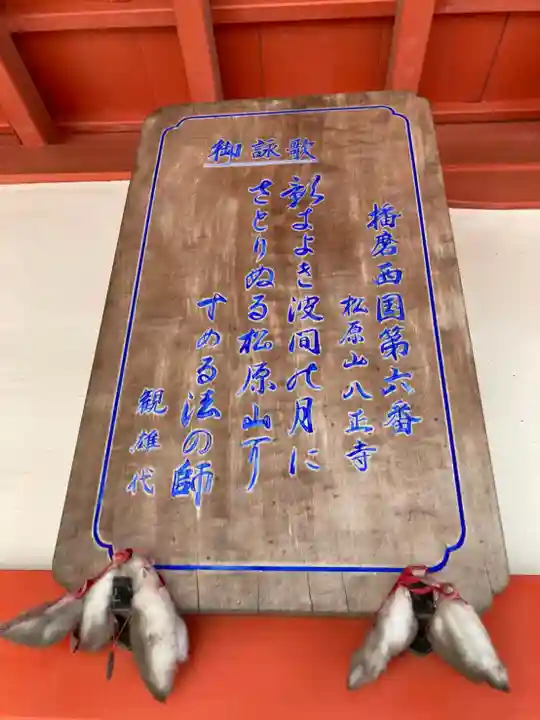 御詠歌
播磨西国第六番
松原山八正寺
影きよき波間の月に
さとりぬる松原山
すめる法の師
観雄代